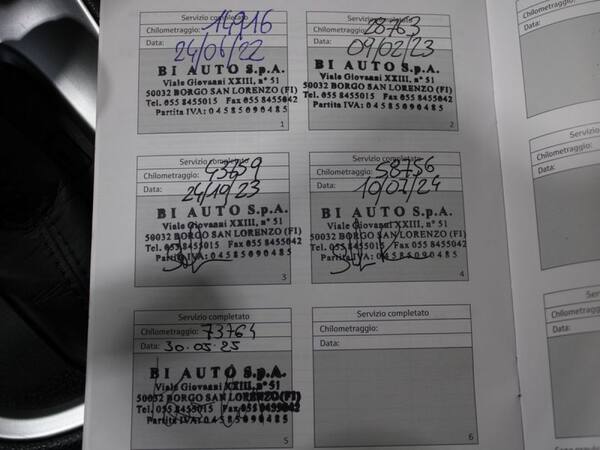 Servizio completato
Chilometraggio: 14916
Data: 24/06/22
BI AUTO S.p.A.
Viale Giovanni XXIII, n° 51
50032 BORGO SAN LORENZO (FI)
Tel. 055 8455015 Fax 055 8455042
Partita IVA: 04585090485
1
Servizio completato
Chilometraggio: 28763
Data: 09/02/23
BI AUTO S.p.A.
Viale Giovanni XXIII, n° 51
50032 BORGO SAN LORENZO (FI)
Tel. 055 8455015 Fax 055 8455042
Partita IVA: 04585090485
2
Servizio completato
Chilometraggio:
Data: 24/10/23
BI AUTO S.p.A.
Viale Giovanni XXIII, n° 51
50032 BORGO SAN LORENZO (FI)
Tel. 055 8455015 Fax 055 8455042
Partita IVA: 04585090485
3
Servizio completato
Chilometraggio: 58756
Data: 10/07/24
BI AUTO S.p.A.
Viale Giovanni XXIII, n° 51
50032 BORGO SAN LORENZO (FI)
Tel. 055 8455015 Fax 055 8455042
Partita IVA: 04585090485
4
Servizio completato
Chilometraggio: 73764
Data: 30.05.25
BI AUTO S.p.A.
Viale Giovanni XXIII, n° 51
50032 BORGO SAN LORENZO (FI)
Tel. 055 8455015 Fax 055 8455042
5
Servizio completato
Chilometraggio:
Data:
6